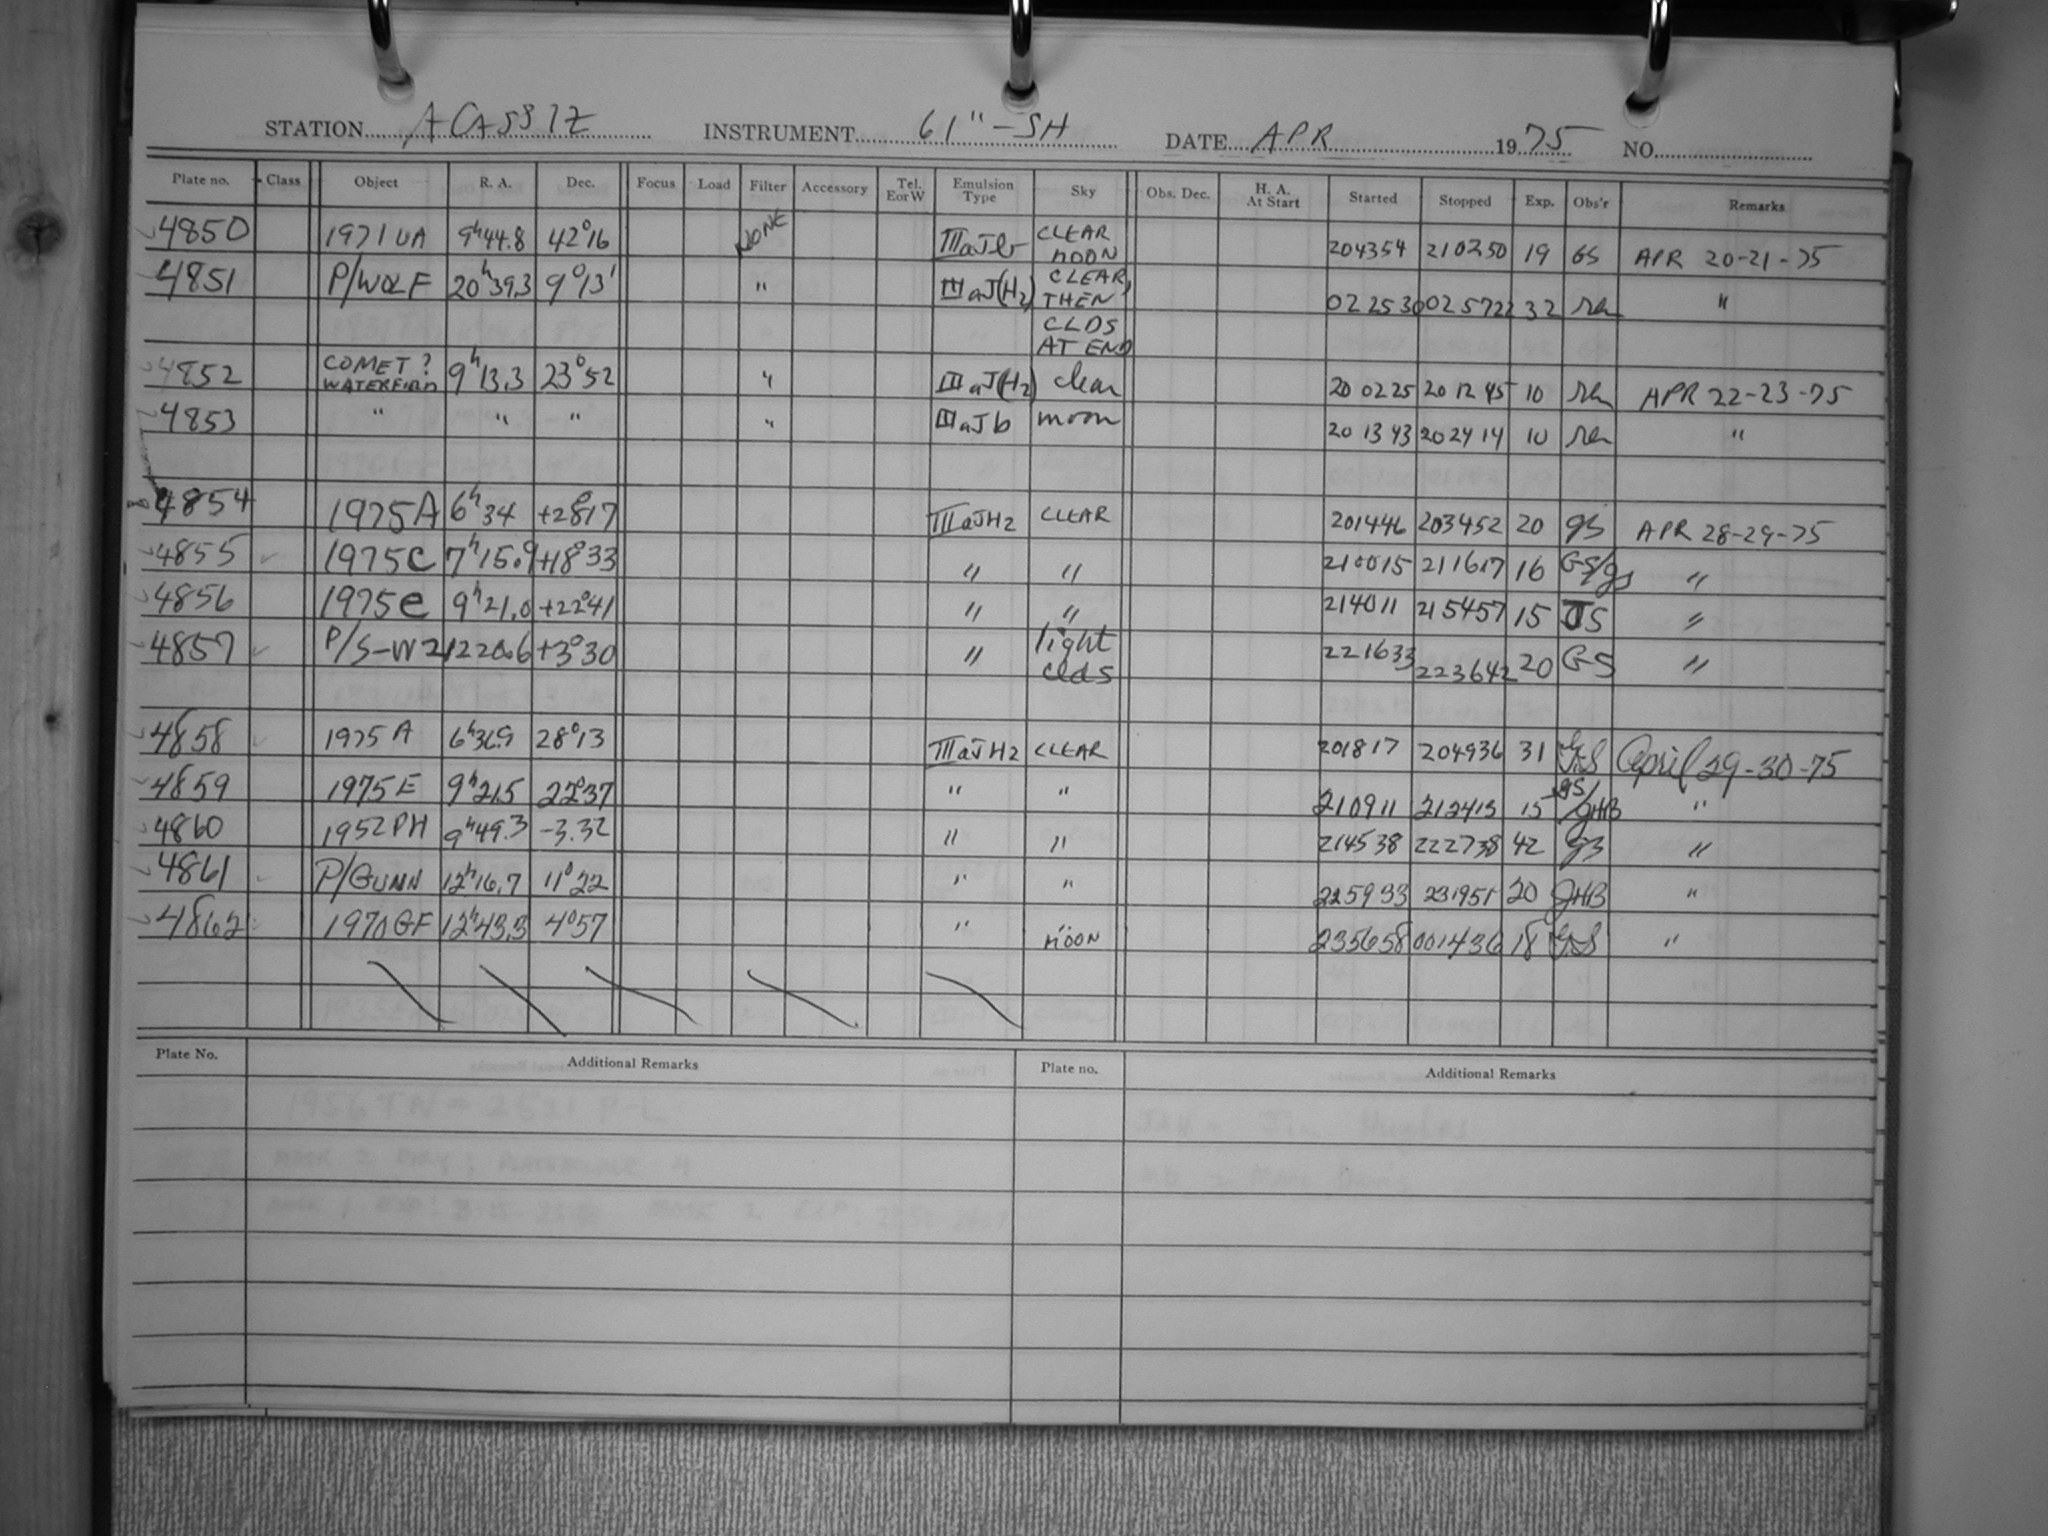 STATION AGASSIZ INSTRUMENT 61"-SH DATE APR 1975 NO.
Plate no. Class Object R. A. Dec. Focus Load Filter Accessory Tel. E or W Emulsion Type Sky Obs. Dec. H. A. At Start Started Stopped Exp. Obs'r Remarks
4850 1971 UA 9h44.8 42°16 NONE IIIaJb CLEAR MOON 204354 210250 19 GS APR 20-21-75
4851 P/WOLF 20h39.3 9°13' " IIIaJ(H2) CLEAR, THEN CLDS AT END 022530 025722 32 " 
4852 COMET? WATERFIELD 9h13.3 23°52 " IIIaJ(H2) clear 200225 201245 10 APR 22-23-75
4853 " " " " IIIaJb moon 201343 202414 10 "
4854 1975A 6h34 +28°17 IIIaJH2 CLEAR 201446 203452 20 gs APR 28-29-75
4855 1975C 7h15.9 +18°33 " " 210015 211617 16 GS/gs "
4856 1975e 9h21.0 +22°41 " " 214011 215457 15 JS "
4857 P/S-W2 1220.6 +3°30 " light clds 221633 223642 20 GS "
4858 1975 A 6h36.9 28°13 IIIaJH2 CLEAR 201817 204936 31 GS April 29-30-75
4859 1975E 9h21.5 22°37 " " 210911 212413 15 gs/JHB "
4860 1952 PH 9h49.3 -3.32 " " 214538 222738 42 gs "
4861 P/GUNN 12h16.7 11°22 " " 225933 231951 20 JHB "
4862 1970GF 12h43.3 4°57 " " MOON 235658 001436 18 GS "
Plate No. Additional Remarks Plate no. Additional Remarks